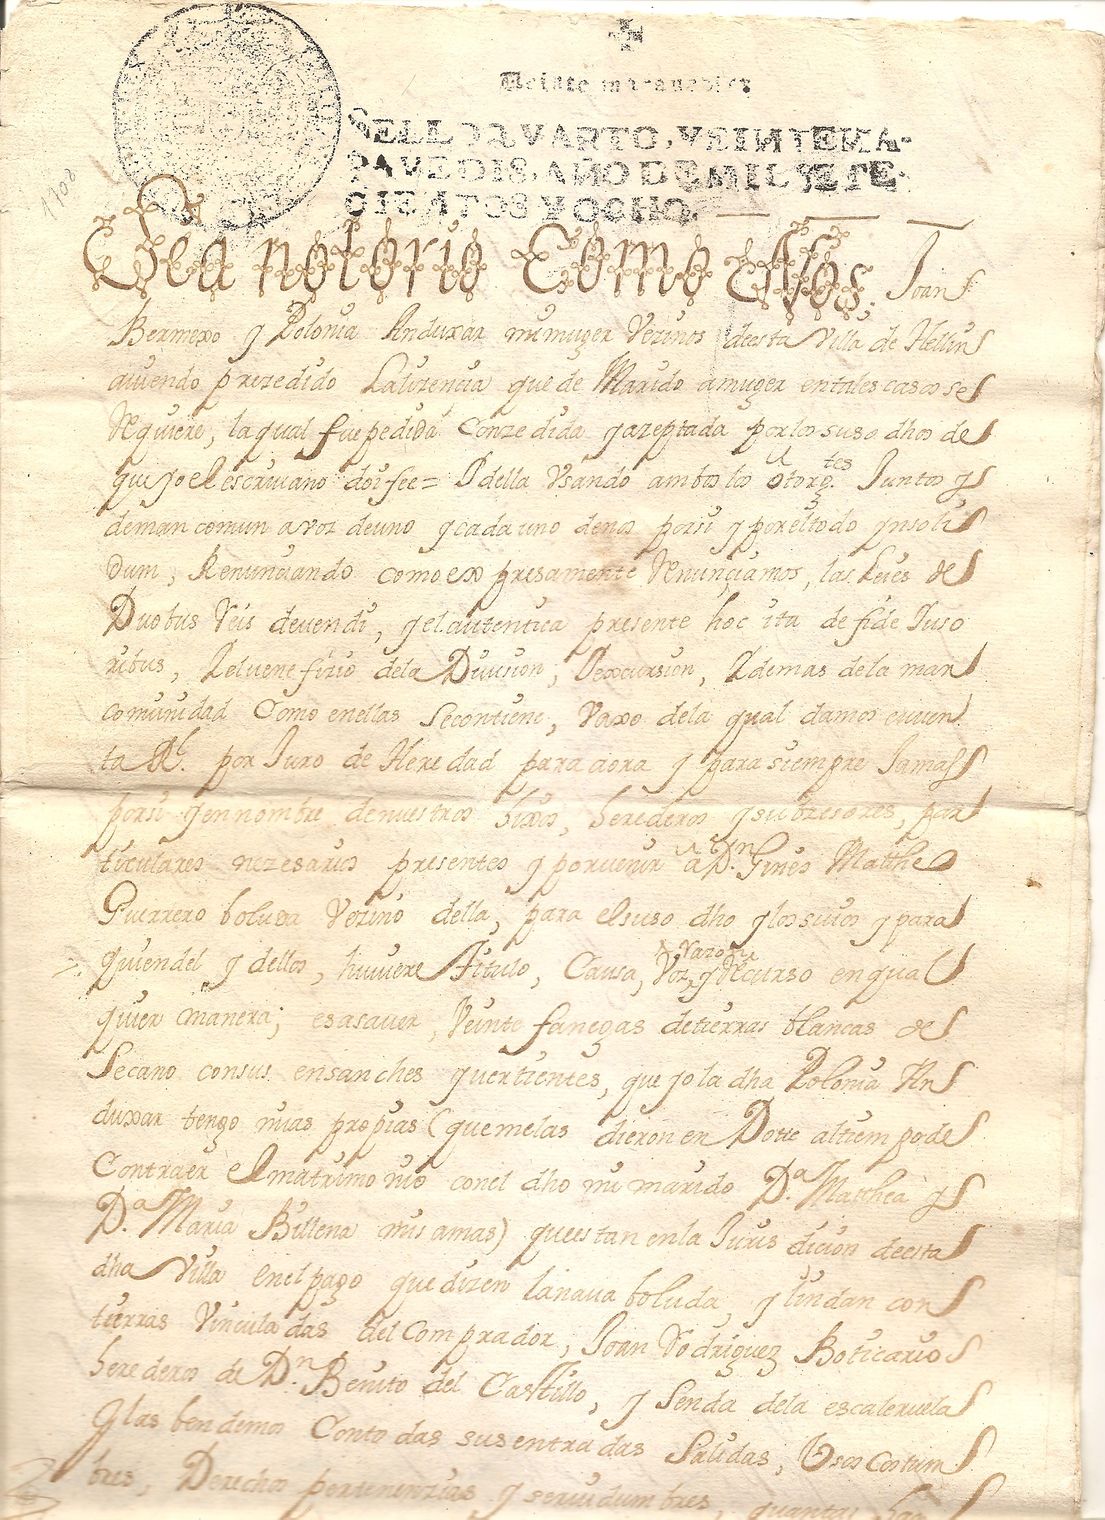 1708
Veinte maravedis
SELLO QVARTO, VEINTE MA-
RAVEDIS, AÑO DE MIL SETE-
CIENTOS Y OCHO.
Sea notorio Como Nos. Joan
Bermexo y Polonia Anduxar mi muger Vezinos deesta Villa de Hellin
aviendo prezedido Lalizencia que de Marido a muger en tales casos se
Requiere, la qual fue pedida Conzedida y azeptada por los suso dhos de
que yo el escrivano doi fee = I della Usando ambos los otorg.tes Juntos y
de man comun a voz de uno y cada uno de nos por si y por el todo ynsoli
dum, Renunciando como expresamente Renunciamos, las Leies de
Duobus Reis devendi, y el autentica presente hoc ita de fide Juso
ribus, I el venefizio dela Division, I excursion, I demas dela man
comunidad Como en ellas Se contiene, Vaxo dela qual damos en ven
ta Rl. por Juro de Heredad para aora y para siempre Jamas
por si y en nombre de nuestros hixos, herederos y subzesores, par
ticulares nezesarios presentes y por venir a D.n Gines Matheo
Guerrero boluda Vezino della, para el suso dho y los suios y para
quien del y dellos, huviere Titulo, Causa, Voz, y Razon Recurso en qual
quier manera; es a saver, Veinte fanegas de tierras blancas de
Secano con sus ensanches y vertientes, que yo la dha Polonia An
duxar tengo mias propias (que me las dieron en Dote al tiempo de
Contraer el matrimonio con el dho mi marido D.a Matthea y
D.a Maria Billena mis amas) que estan en la Jurisdicion deesta
dha Villa en el pago que dizen la nava boluda, y lindan con
tierras Vinculadas del Comprador, Joan Rodriguez Boticario
herederos de D.n Benito del Castillo, y Senda dela escaleruela
Y las bendemos Con todas sus entradas Salidas, Usos Costum
bres, Derechos pertenenzias y servidumbres, quantas han